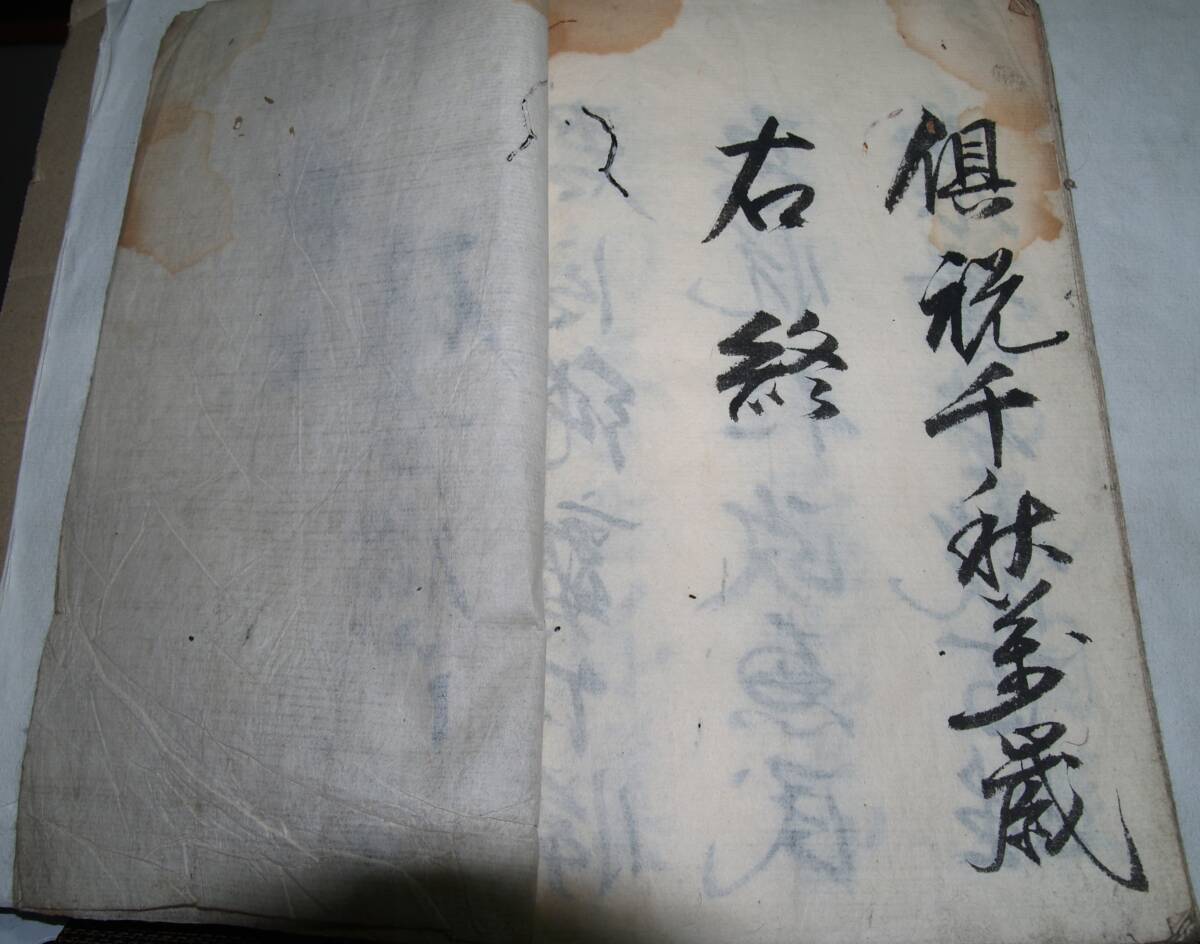 俱祝千秋萬歳
右終